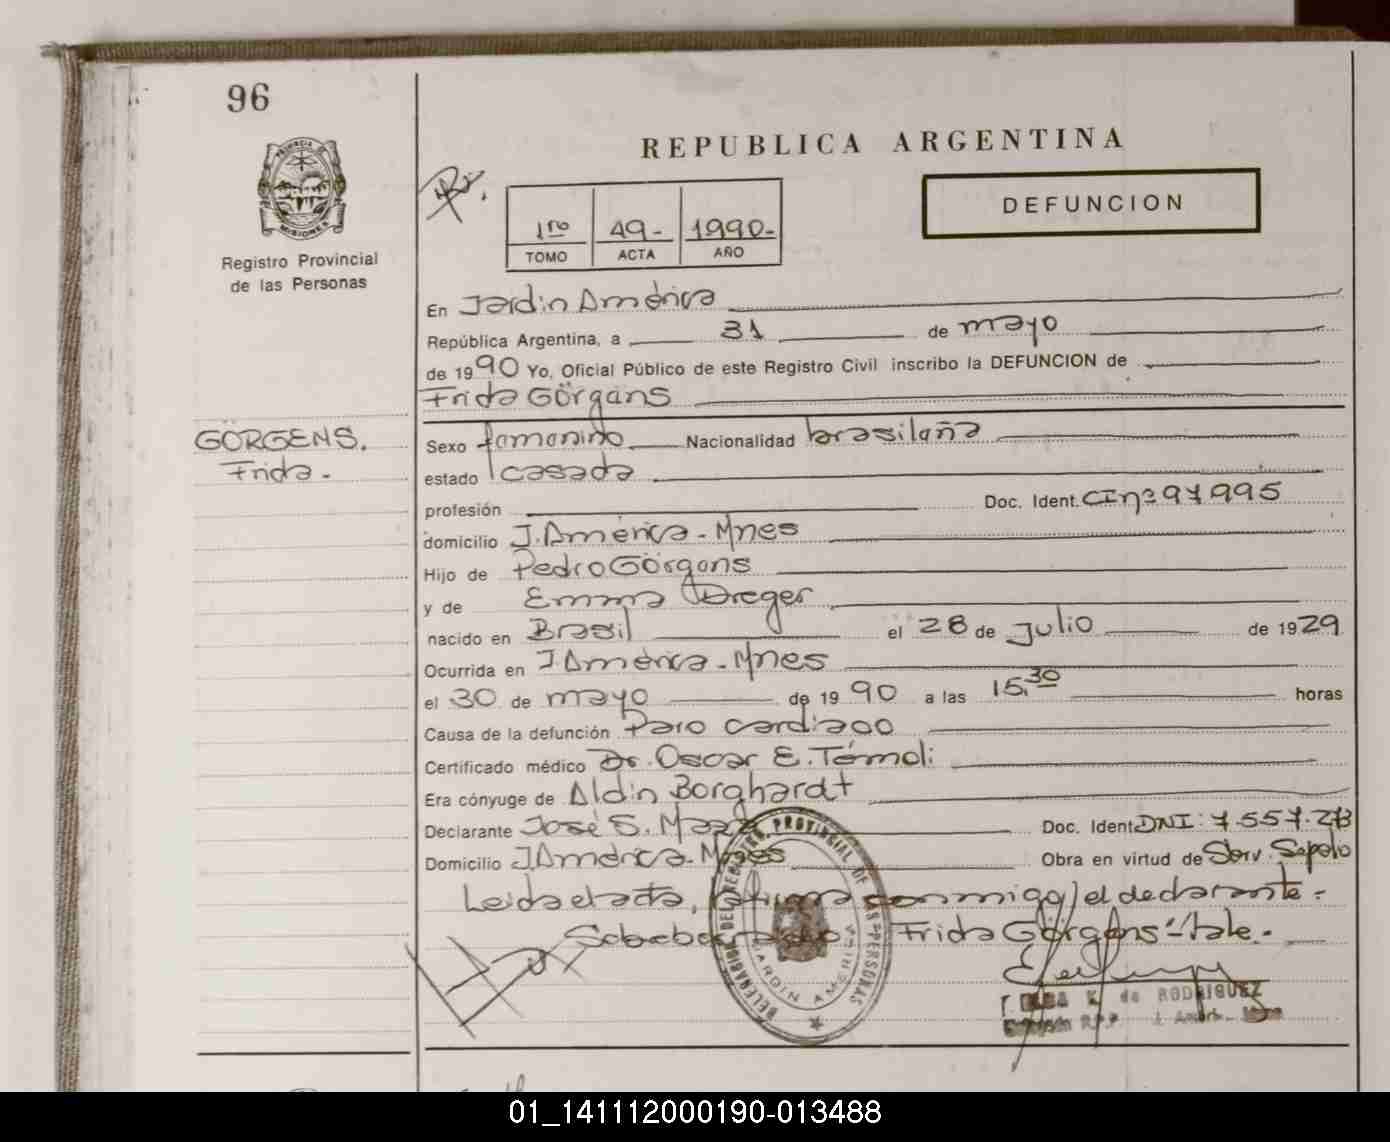 96
REPUBLICA ARGENTINA
DEFUNCION
1ro 49- 1990-
TOMO ACTA AÑO
PROVINCIA DE
MISIONES
Registro Provincial
de las Personas
En Jardin América
República Argentina, a 31 de mayo
de 1990 Yo, Oficial Público de este Registro Civil inscribo la DEFUNCION de
Frida Görgens
GÖRGENS.
Frida.-
Sexo femenino Nacionalidad brasileña
estado casada
profesión Doc. Ident. CInº 97995
domicilio J. América - Mnes
Hijo de Pedro Görgens
y de Emma Dreger
nacido en Brasil el 28 de Julio de 1929
Ocurrida en J. América - Mnes
el 30 de mayo de 1990 a las 15,30 horas
Causa de la defunción Paro cardiaco
Certificado médico Dr. Oscar E. Támoli
Era cónyuge de Aldin Borghardt
Declarante José S. Doc. Ident. DNI: 7557.
Domicilio J. América - Mnes Obra en virtud de Serv. Sepelio
Leida el acta, la firma conmigo, el declarante:-
Sobreborrado Frida Görgens - Vale.-
DELEGACION DEL REGISTRO PROVINCIAL DE LAS PERSONAS
JARDIN AMERICA
de RODRIGUEZ
R.P.P. J. Améri-
01_141112000190-013488